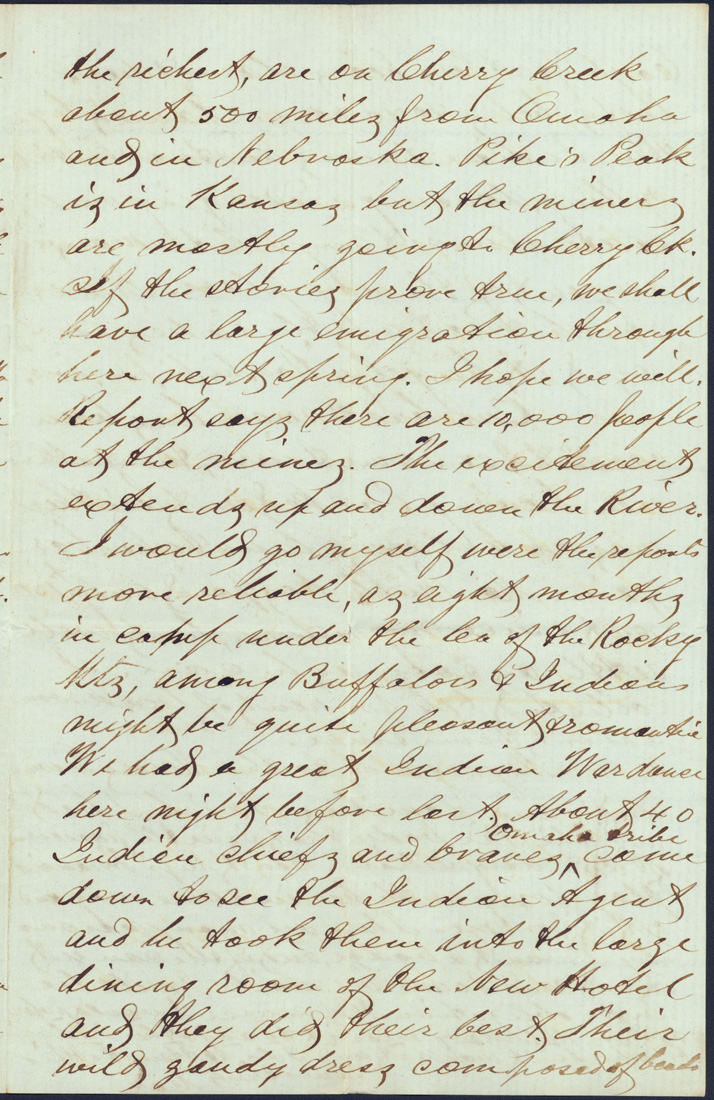 the richest, are on Cherry Creek
about 500 miles from Omaha
and in Nebraska. Pike's Peak
is in Kansas but the miners
are mostly going to Cherry Ck.
If the stories prove true, we shall
have a large emigration through
here next spring. I hope we will.
Report says there are 10,000 people
at the mines. The excitement
extends up and down the River.
I would go myself were the reports
more reliable, as eight months
in camp under the lea of the Rocky
Mts, among Buffalos & Indians
might be quite pleasant & romantic
We had a great Indian War dance
here night before last. About 40
Omaha tribe
Indian chiefs and braves ^ came
down to see the Indian Agent
and he took them into the large
dining room of the New Hotel
and they did their best. Their
wild gaudy dress composed of beads